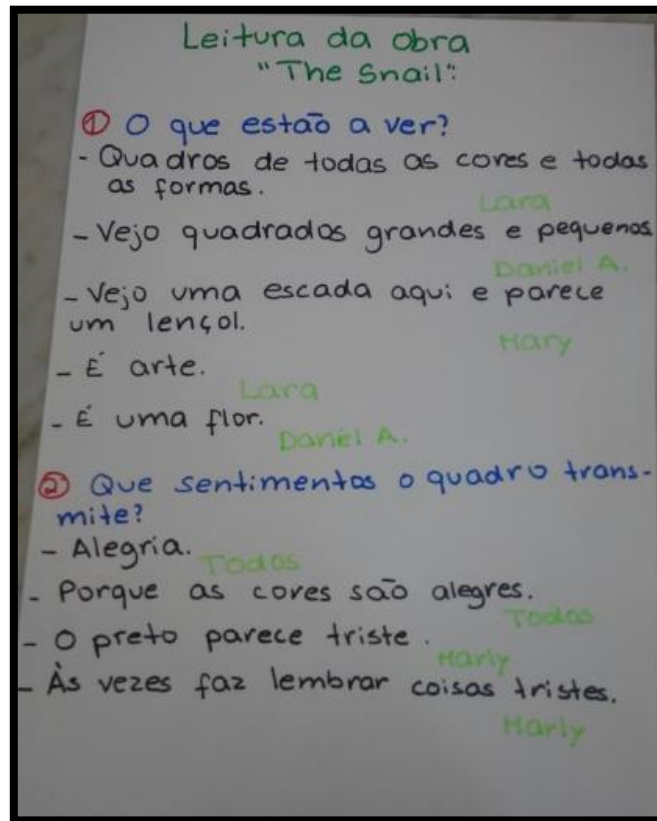 Leitura da obra
"The Snail":
① O que estão a ver?
- Quadros de todas as cores e todas
as formas.
Lara
- Vejo quadrados grandes e pequenos
Daniel A.
- Vejo uma escada aqui e parece
um lençol.
Hary
- É arte.
Lara
- É uma flor.
Daniel A.
② Que sentimentos o quadro trans-
mite?
- Alegria.
Todos
- Porque as cores são alegres.
Todos
- O preto parece triste.
Harly
- Às vezes faz lembrar coisas tristes.
Harly